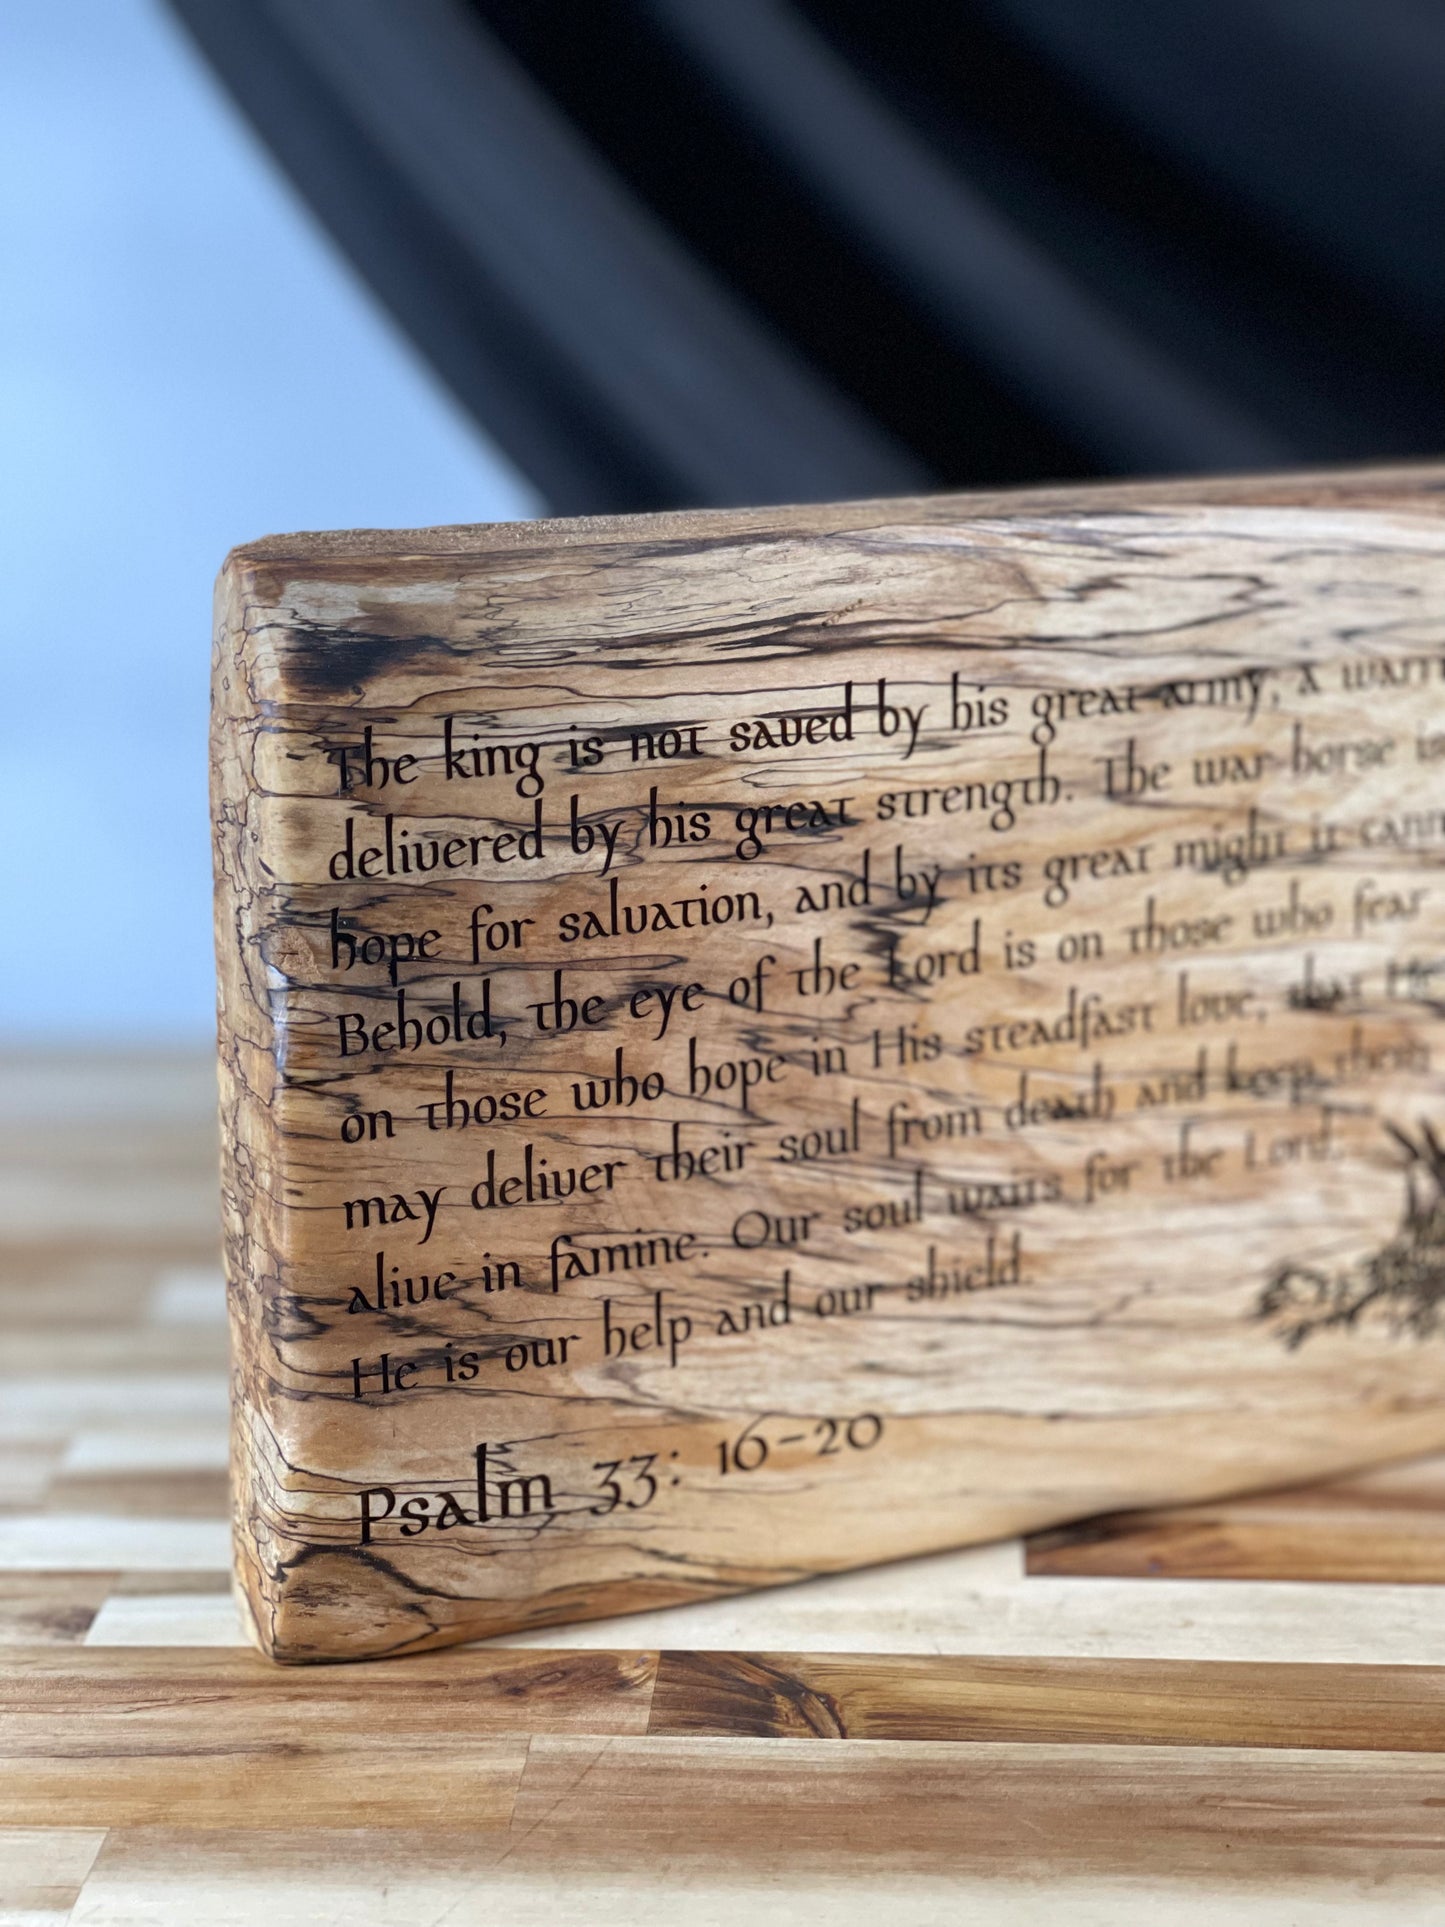 The king is not saved by his great army, a
delivered by his great strength. The war horse is
hope for salvation, and by its great might it
Behold, the eye of the Lord is on those who fear
on those who hope in His steadfast love, that He
may deliver their soul from death and keep them
alive in famine. Our soul waits for the Lord.
He is our help and our shield.
Psalm 33: 16-20